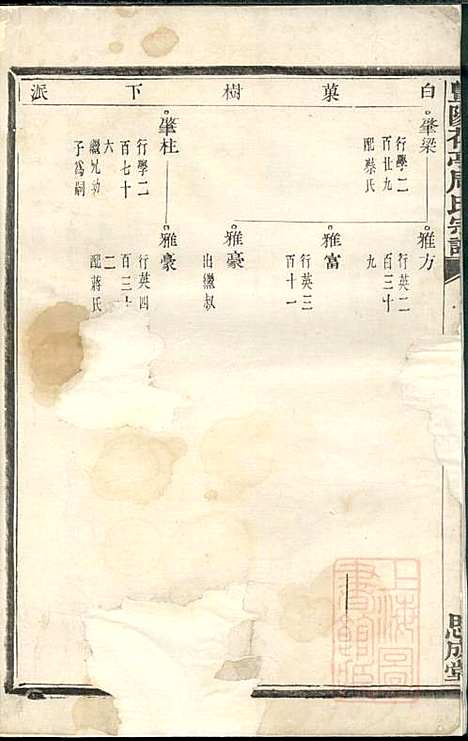 白菓樹下派
肇梁
行學二
百廿九
配蔡氏
肇柱
行學二
百七十
六
繼兄幼
子為嗣
雅方
行英二
百三十
九
雅富
行英三
百十一
雅豪
出繼叔
雅豪
行英四
百二十
二
配蔣氏
周氏宗譜
思成堂
上海圖書館